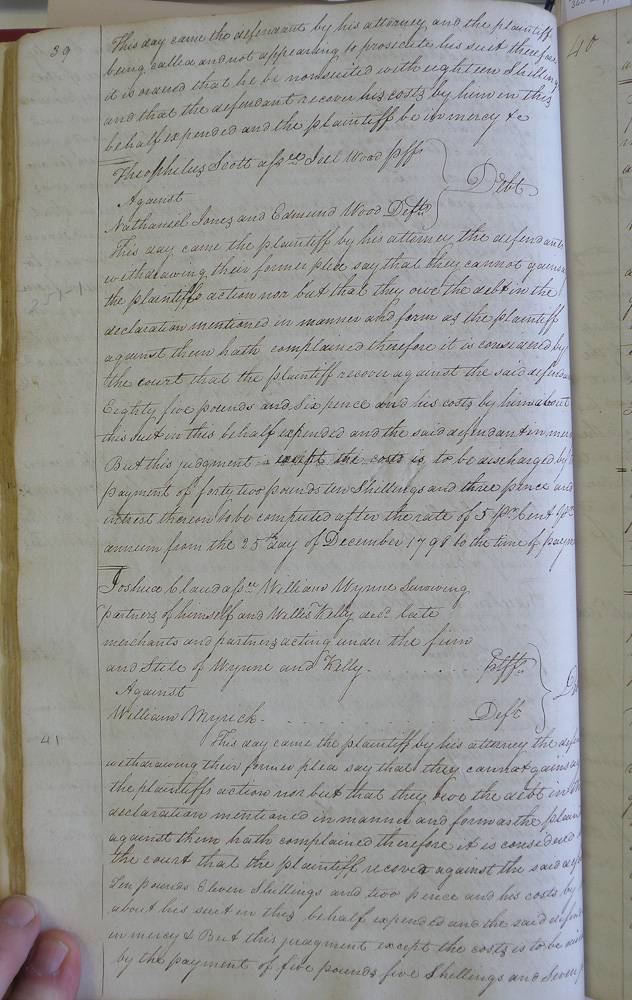 39
This day came the defendant by his attorney and the plaintiff
being called and not appearing to prosecute his suit therefore
it is ordered that he be nonsuited with eighteen Shillings
and that the defendant recover his costs by him in this
behalf expended and the plaintiff be in mercy &c
Theophilus Scott assee Joel Wood Plff
Against
Debt
Nathaniel Jones and Edmund Wood Defts
This day came the plaintiff by his attorney the defendants
withdrawing their former plea say that they cannot gainsay
the plaintiffs action nor but that they owe the debt in the
declaration mentioned in manner and form as the plaintiff
against them hath complained therefore it is considered by
the court that the plaintiff recover against the said
Eighty five pounds and Six pence and his costs by him about
this suit in this behalf expended and the said defendant in
But this judgment except the costs is to be discharged by
payment of forty two pounds ten Shillings and three pence and
interest thereon to be computed after the rate of 5 pr Cent pr
annum from the 25th day of December 1798 to the time of
Joshua Claud assee William Wynne Surviving
partners of himself and Willis Kelly decd late
merchants and partners acting under the firm
and Stile of Wynne and Kelly . . . . . . Plffs
Against
William Myrick . . . . . . . . Deft
41
This day came the plaintiff by his attorney the
withdrawing their former plea say that they cannot gainsay
the plaintiffs action nor but that they owe the debt in the
declaration mentioned in manner and form as the
against them hath complained therefore it is considered
the court that the plaintiff recover against the said
Ten pounds Eleven Shillings and two pence and his costs by
about his suit in this behalf expended and the said
in mercy & But this judgment except the costs is to be
by the payment of five pounds five Shillings and
40